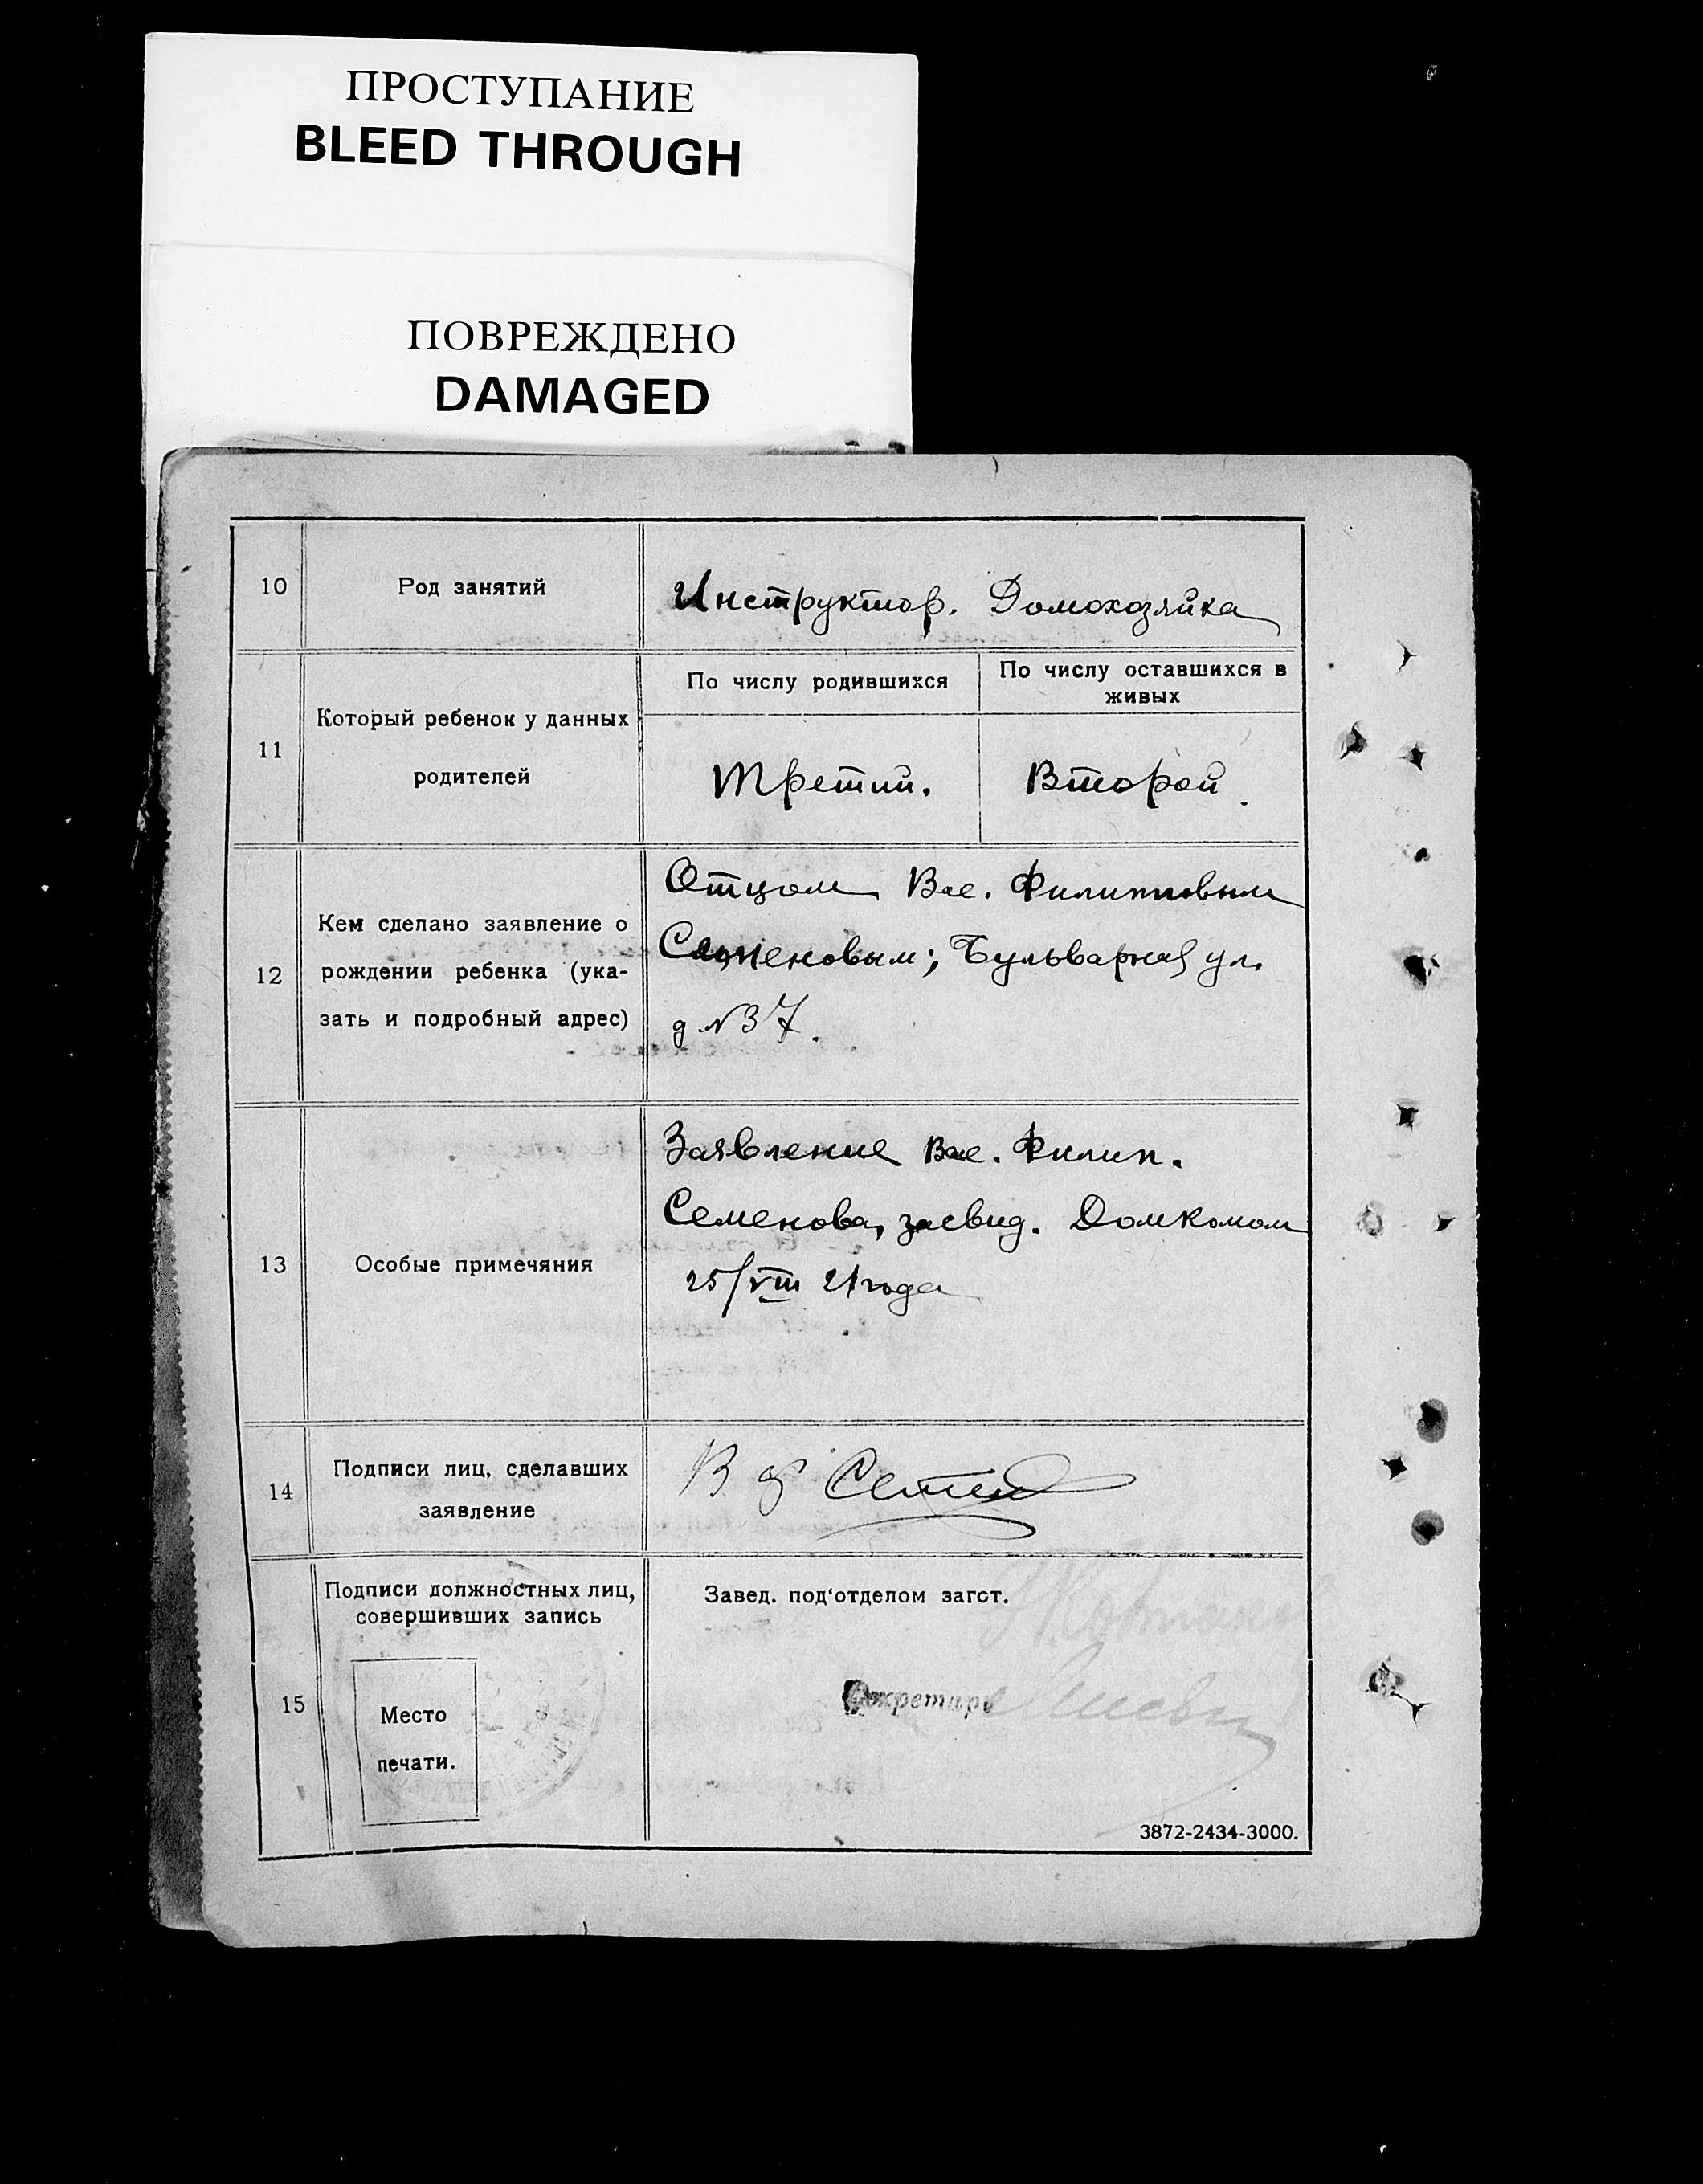 ПРОСТУПАНИЕ
BLEED THROUGH
ПОВРЕЖДЕНО
DAMAGED
10 Род занятий Инструктор. Домохозяйка
11 Который ребенок у данных родителей
По числу родившихся
По числу оставшихся в живых
Третий. Второй.
Отцом Вас. Филипповым
12 Кем сделано заявление о
рождении ребенка (ука-
зать и подробный адрес)
Семеновым; Бульварная ул.
д №37.
Заявление Вас. Филип.
Семенова, засвид. Домкомом
13 Особые примечяния
25/VIII 21 года
14 Подписи лиц, сделавших
заявление
В Ф Семен
15 Подписи должностных лиц,
совершивших запись
Завед. под'отделом загст.
Место
печати.
Секретарь
3872-2434-3000.